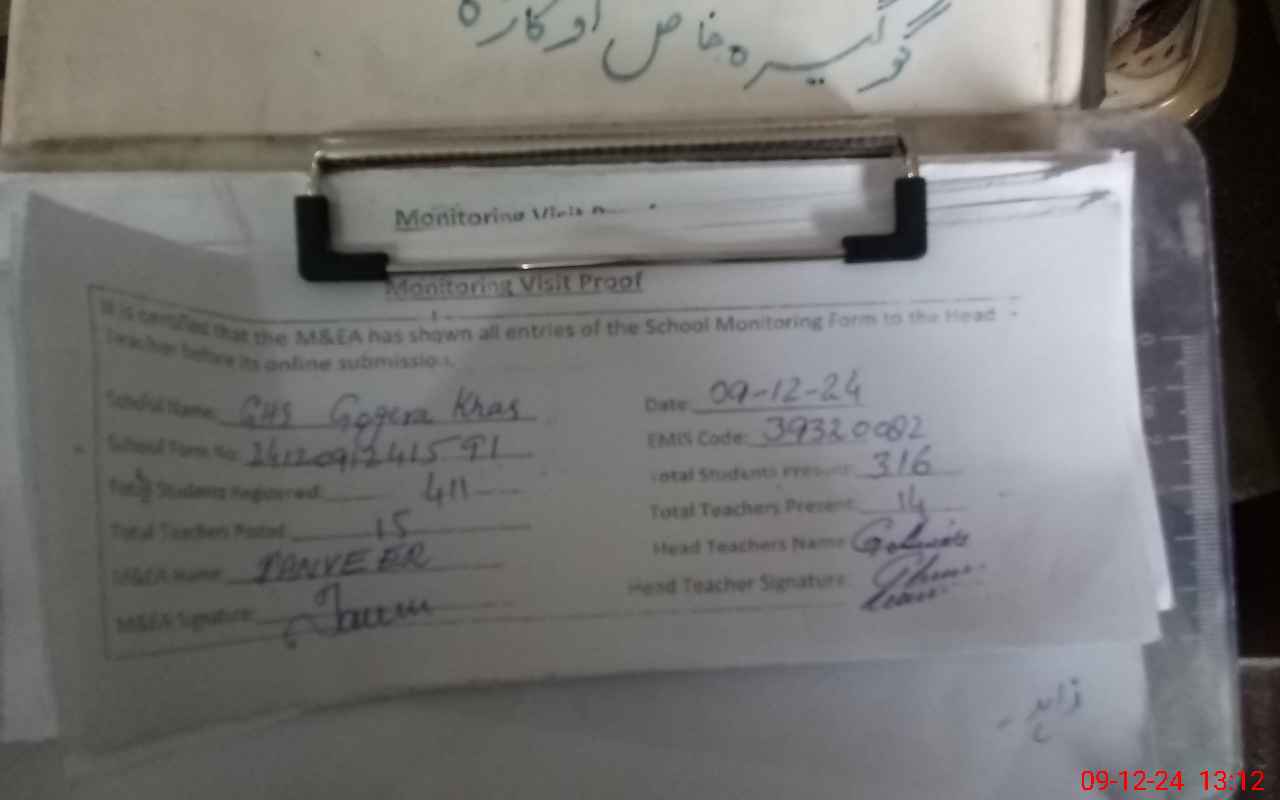 گوگیرہ خاص اوکاڑہ
Monitoring Visit
Monitoring Visit Proof
It is certified that the M&EA has shown all entries of the School Monitoring Form to the Head
Teacher before its online submission.
School Name: GHS Gogera Khas
Date: 09-12-24
School Form No: 24120912415 91
EMIS Code: 39320082
Total Students Registered: 411
Total Students Present: 316
Total Teachers Posted: 15
Total Teachers Present: 14
M&EA Name: TANVEER
Head Teachers Name
M&EA Signature:
Head Teacher Signature:
زاہد
09-12-24 13:12